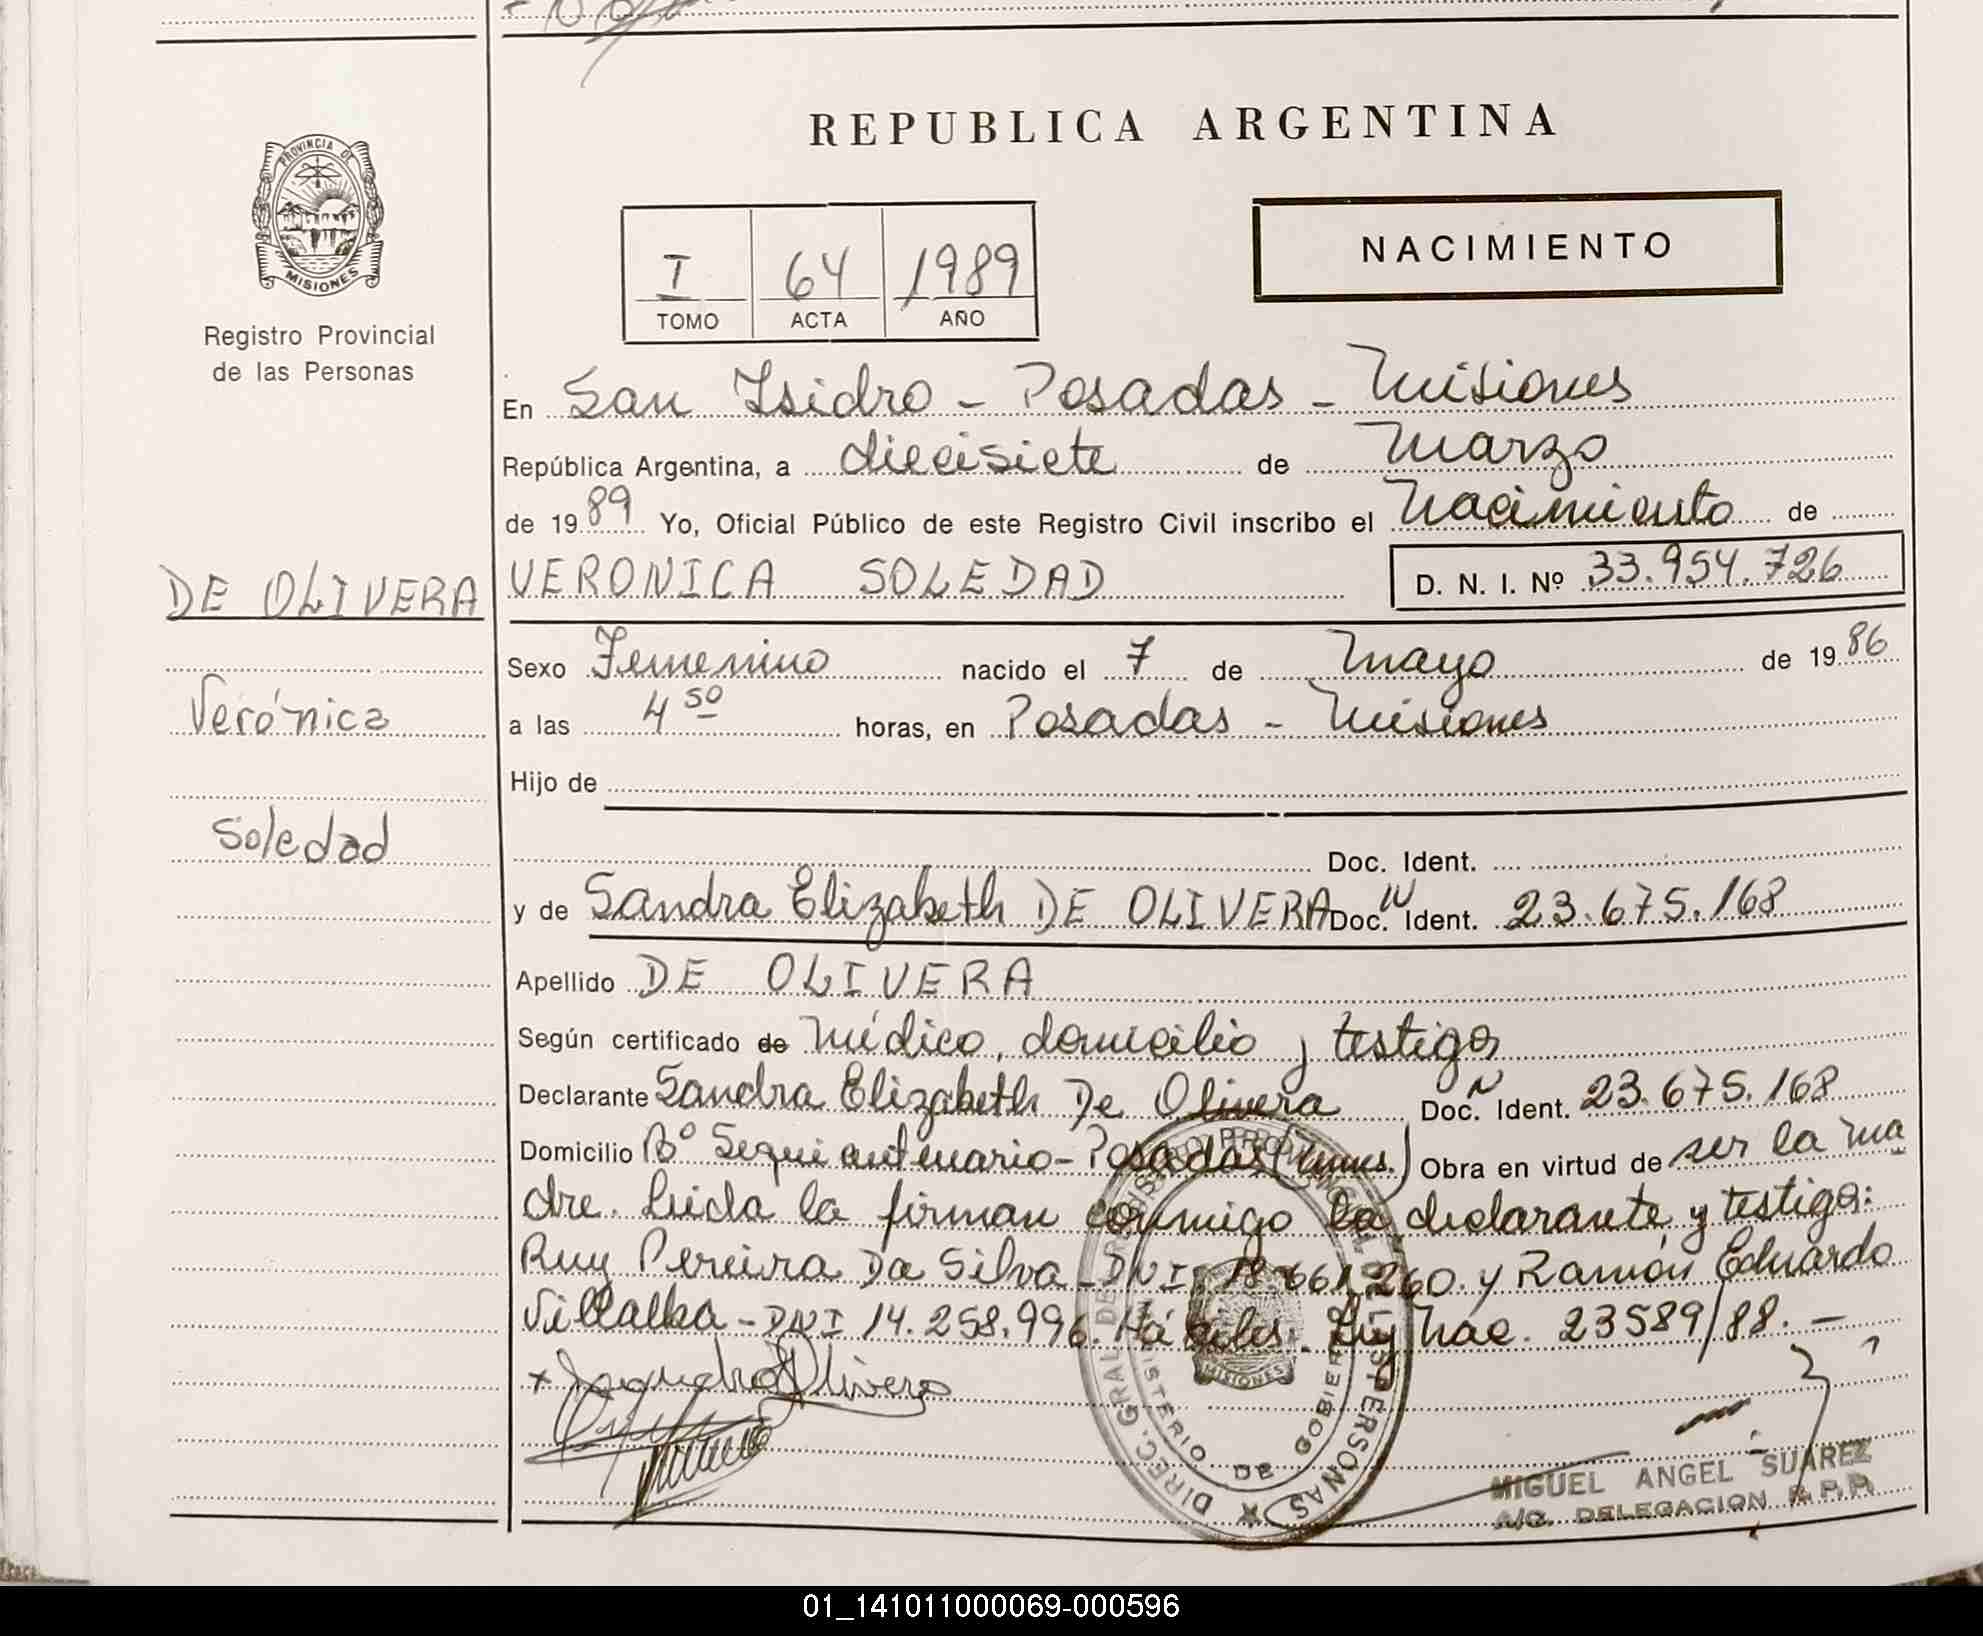 REPUBLICA ARGENTINA
PROVINCIA DE
MISIONES
Registro Provincial
de las Personas
I 64 1989
TOMO ACTA AÑO
NACIMIENTO
En San Isidro - Posadas - Misiones
República Argentina, a diecisiete de Marzo
de 1989 Yo, Oficial Público de este Registro Civil inscribo el Nacimiento de
DE OLIVERA VERONICA SOLEDAD D. N. I. Nº 33.954.726
Sexo Femenino nacido el 7 de Mayo de 1986
Verónica a las 4 50 horas, en Posadas - Misiones
Hijo de
Soledad
Doc. Ident.
y de Sandra Elizabeth DE OLIVERA Doc. Ident. 23.675.168
Apellido DE OLIVERA
Según certificado de Médico, domicilio y testigos
Declarante Sandra Elizabeth De Olivera Doc. Ident. 23.675.168
Domicilio Bº Sequicentenario - Posadas (Mnes.) Obra en virtud de ser la ma
dre. Leida la firman conmigo la declarante y testigos:
Ruy Pereira Da Silva - DNI. 18.661.260. y Ramón Eduardo
Villalba - DNI 14.258.996. Hábiles. Ley Nac. 23589/88. -
DIREC. GRAL DE PERSONAS
MINISTERIO DE GOBIERNO
MISIONES
MIGUEL ANGEL SUAREZ
A/C. DELEGACION R.P.P.
01_141011000069-000596